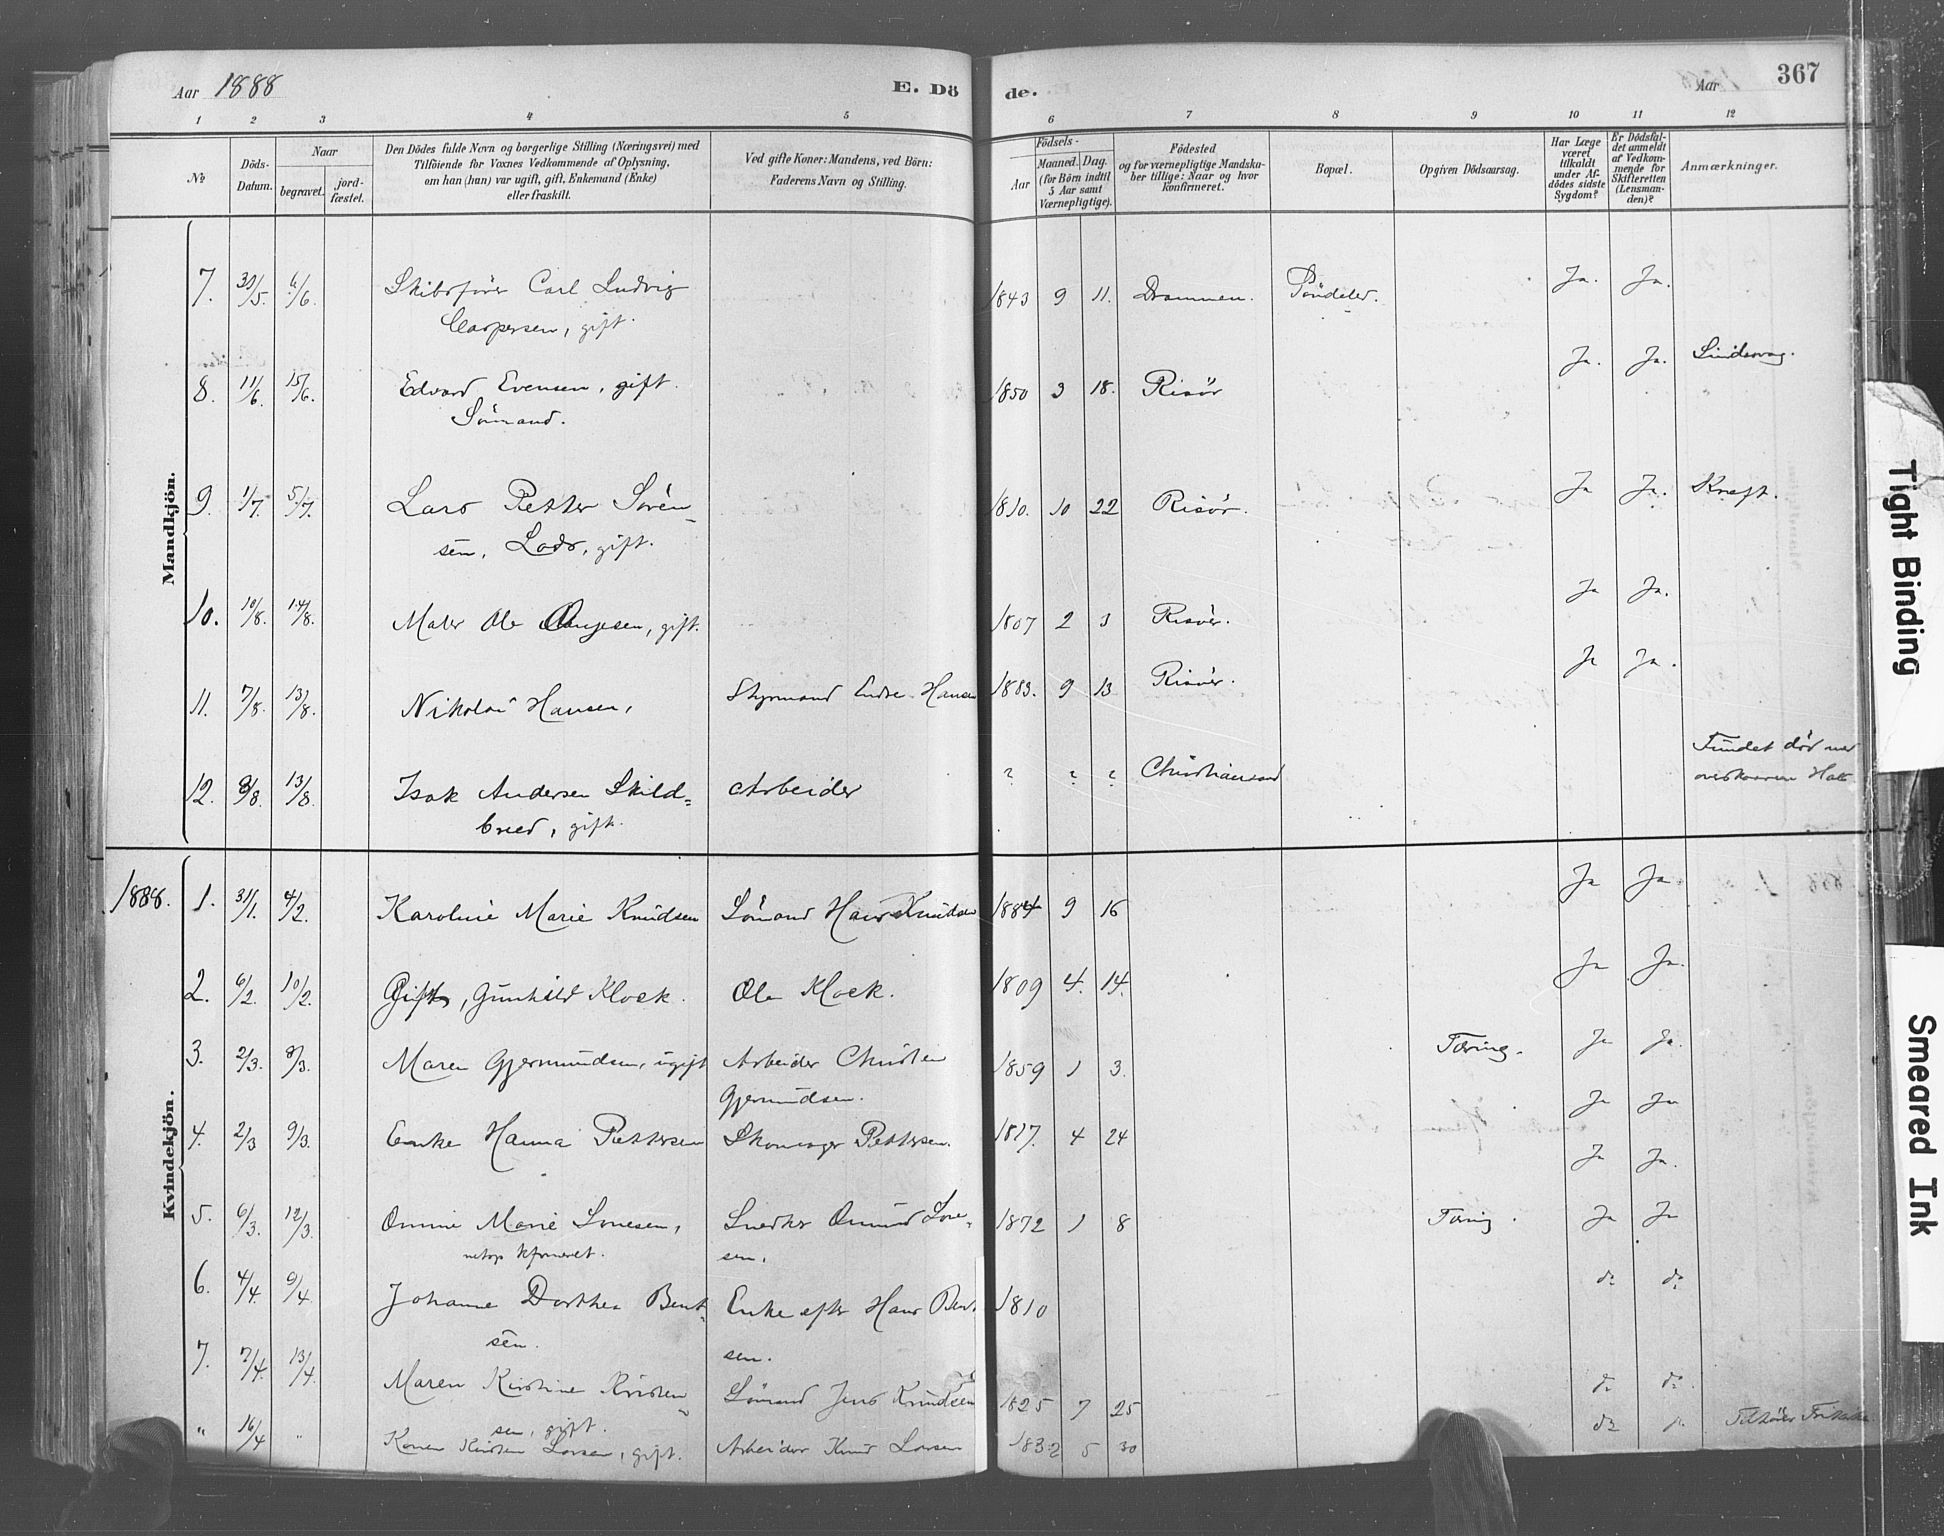 Aar 1888
E. Dö
de.
Aar
367
1 2 3 4 5 6 7 8 9 10 11 12
No
Döds-
Datum.
Naar
begravet.
jord-
fæstet.
Den Dödes fulde Navn og borgerlige Stilling (Næringsvei) med
Tilföiende for Voxnes Vedkommende af Oplysning,
om han (hun) var ugift, gift, Enkemand (Enke)
eller fraskilt.
Ved gifte Koner: Mandens, ved Börn:
Faderens Navn og Stilling.
Födsels-
Aar
Maaned. Dag.
(for Börn indtil
5 Aar samt
Værnepligtige).
Födested
og for værnepligtige Mandska-
ber tillige: Naar og hvor
konfirmeret.
Bopæl.
Opgiven Dödsaarsag.
Har Læge
været
tilkaldt
under Af-
dödes sidste
Sygdom?
Er Dödsfal-
det anmeldt
af Vedkom-
mende for
Skifteretten
(Lensman-
den)?
Anmærkninger.
Mandkjön.
7. 30/5. 6/6. Skibsförer Carl Ludvig 1843 9 11. Drammen. Söndeled. Ja. Ja.
Caspersen, gift.
8. 11/6. 15/6. Edvard Evensen, gift. 1850 3 18. Risör Ja. Ja.
Sömand.
9. 1/7. 5/7. Lars Petter Sören- 1810. 10 22 Risör. Ja Ja. Kraft.
sen, Lods, gift.
10. 10/8. 14/8. Maler Ole gift. 1807 2 3 Risör. Ja Ja.
11. 7/8. 13/8. Nikolai Hansen, Styrmand Endre Hansen 1883. 9 13 Risör. Ja Ja.
12. 8/8. 13/8. Isak Andersen Skild= Arbeider ? ? ? Christiansand Fundet död
bred, gift.
Kvindekjön.
1888. 1. 31/1. 4/2. Karoline Marie Knudsen Sömand Hans Knudsen 1884 9 16 Ja Ja
2. 6/2. 10/2. Gift, Gunhild Klock. Ole Klock. 1809 4. 14. Ja Ja.
3. 2/3. 8/3. Maren Gjermundsen, ugift Arbeider Christen 1859 1 3. Tæring. Ja Ja.
Gjermundsen.
4. 2/3 9/3. Enke Hanna Pettersen Skomager Pettersen. 1817. 4 24 Ja Ja
Ja Ja.
5. 6/3. 12/3. Marie Snedker 1872 1 8 Tæring. Ja Ja
sen.
6. 4/4. 9/4. Johanne Dorthea Bent- Enke efter Hans Bent 1810 do do
sen. sen.
7. 7/4. 13/4. Maren Kirstine Kristen- Sömand Jens Knudsen 1825 7 25 do do
sen, gift.
" 16/4 " Konen Kirsten Larsen, gift. Arbeider Knud Larsen 1832 5 30 do
Tilhörer
Tight Binding
Smeared Ink